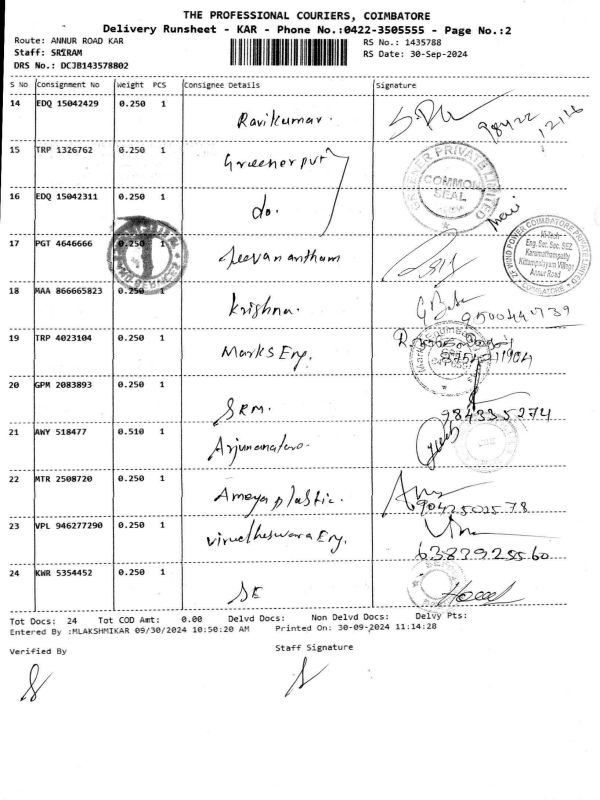 THE PROFESSIONAL COURIERS, COIMBATORE
Delivery Runsheet - KAR - Phone No.:0422-3505555 - Page No.:2
Route: ANNUR ROAD KAR
RS No.: 1435788
Staff: SRIRAM
RS Date: 30-Sep-2024
DRS No.: DCJB143578802
S No Consignment No Weight PCS Consignee Details Signature
14 EDQ 15042429 0.250 1 Ravikumar.
98422
12116
15 TRP 1326762 0.250 1 Greener pvt
GREENER PRIVATE LIMITED
COMMON
SEAL
16 EDQ 15042311 0.250 1 do.
17 PGT 4646666 0.250 1 Jeevanantham
ZF WIND POWER COIMBATORE PRIVATE LIMITED
Hi-Tech
Eng. Sec. Soc. SEZ
Karamathampatty
Kittampalayam Village
Annur Road
COIMBATORE
18 MAA 866665823 0.250 1 Krishna.
19 TRP 4023104 0.250 1 Marks Eng.
20 GPM 2083893 0.250 1 SRM.
9843335274
21 AWY 518477 0.510 1
22 MTR 2508720 0.250 1 Ameya plastic.
9042502578
23 VPL 946277290 0.250 1 Virudheswara Eng.
6382925560
24 KWR 5354452 0.250 1 SE
Tot Docs: 24 Tot COD Amt: 0.00 Delvd Docs: Non Delvd Docs: Delvy Pts:
Entered By :MLAKSHMIKAR 09/30/2024 10:50:20 AM Printed On: 30-09-2024 11:14:28
Verified By
Staff Signature